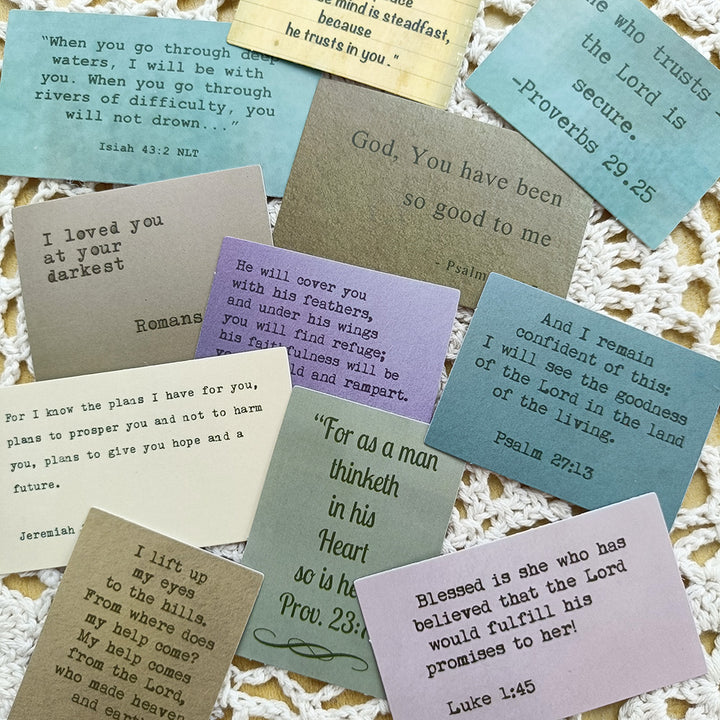 "When you go through deep
waters, I will be with
you. When you go through
rivers of difficulty, you
will not drown..."
Isiah 43:2 NLT
mind is steadfast,
because
he trusts in you."
who trusts
the Lord is
secure.
—Proverbs 29.25
God, You have been
so good to me
- Psalm
I loved you
at your
darkest
Romans
He will cover you
with his feathers,
and under his wings
you will find refuge;
his faithfulness will be
and rampart.
And I remain
confident of this:
I will see the goodness
of the Lord in the land
of the living.
Psalm 27:13
For I know the plans I have for you,
plans to prosper you and not to harm
you, plans to give you hope and a
future.
Jeremiah
"For as a man
thinketh
in his
Heart
so is he
Prov. 23:
I lift up
my eyes
to the hills.
From where does
my help come?
My help comes
from the Lord,
who made heaven
and earth
Blessed is she who has
believed that the Lord
would fulfill his
promises to her!
Luke 1:45